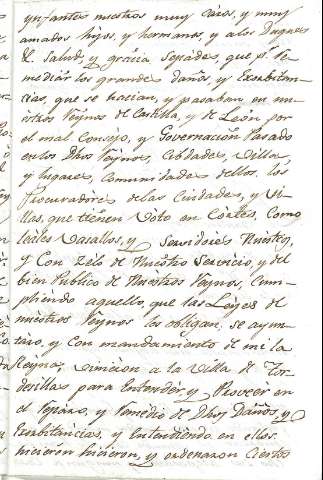 ynfantes nuestros muy caros, y muy
amados hijos, y hermanos, y a los Duques
&. Salud, y gracia sepades, que pr. re-
mediár los grandes daños, y Exorbitan-
cias, que se hacian, y pasaban en nu-
estros Reynos de Castilla, y de León por
el mal Consejo, y Governación Pasado
en los Dhos Reynos, Cibdades, Villas
y lugares, comunidades dellos, los
Procuradores de las Ciudades, y Vi-
llas, que tienen Voto en Córtes, como
leales Vasallos, y Servidores Nuestros,
y Con zelo de Nuestro Servicio, y del
bien Publico de Nuestros Reynos, Cum-
pliendo aquello, que las Leyes de
nuestros Reynos los obligan, se ayun-
taro, y con mandamiento de mi la
Reyna, vinieron a la Villa de Tor-
desillas para Entendér, y Proveér en
el Reparo, y Remedio de Dhos Daños, y
Exorbitancias, y Entendiendo en ellos
hicieron hicieron, y ordenaron Ciertos